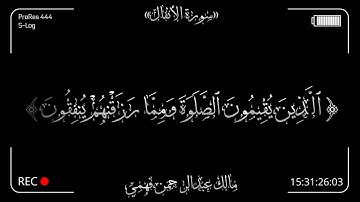 ProRes 444
S-Log
«سورة الأنفال»
﴿ ٱلَّذِينَ يُقِيمُونَ ٱلصَّلَوٰةَ وَمِمَّا رَزَقۡنَٰهُمۡ يُنفِقُونَ ﴾
مالك عبدالرحمن فهمي
REC
15:31:26:03